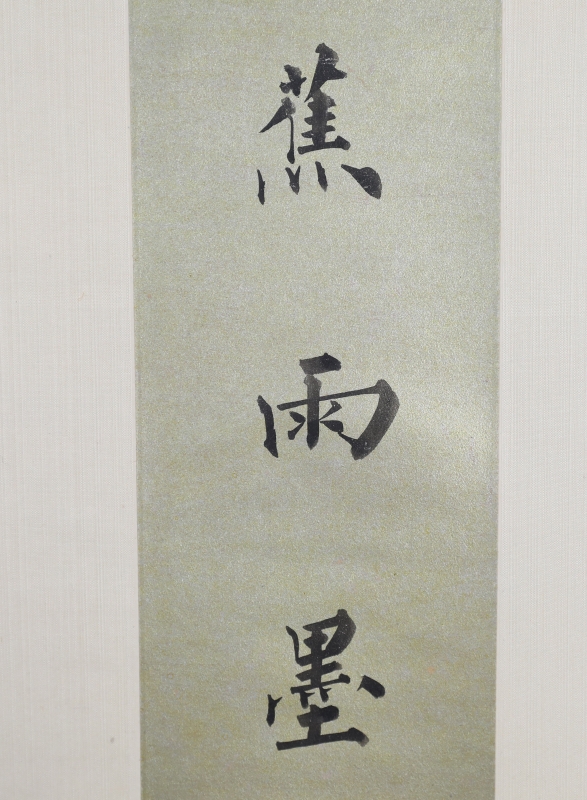 蕉雨墨